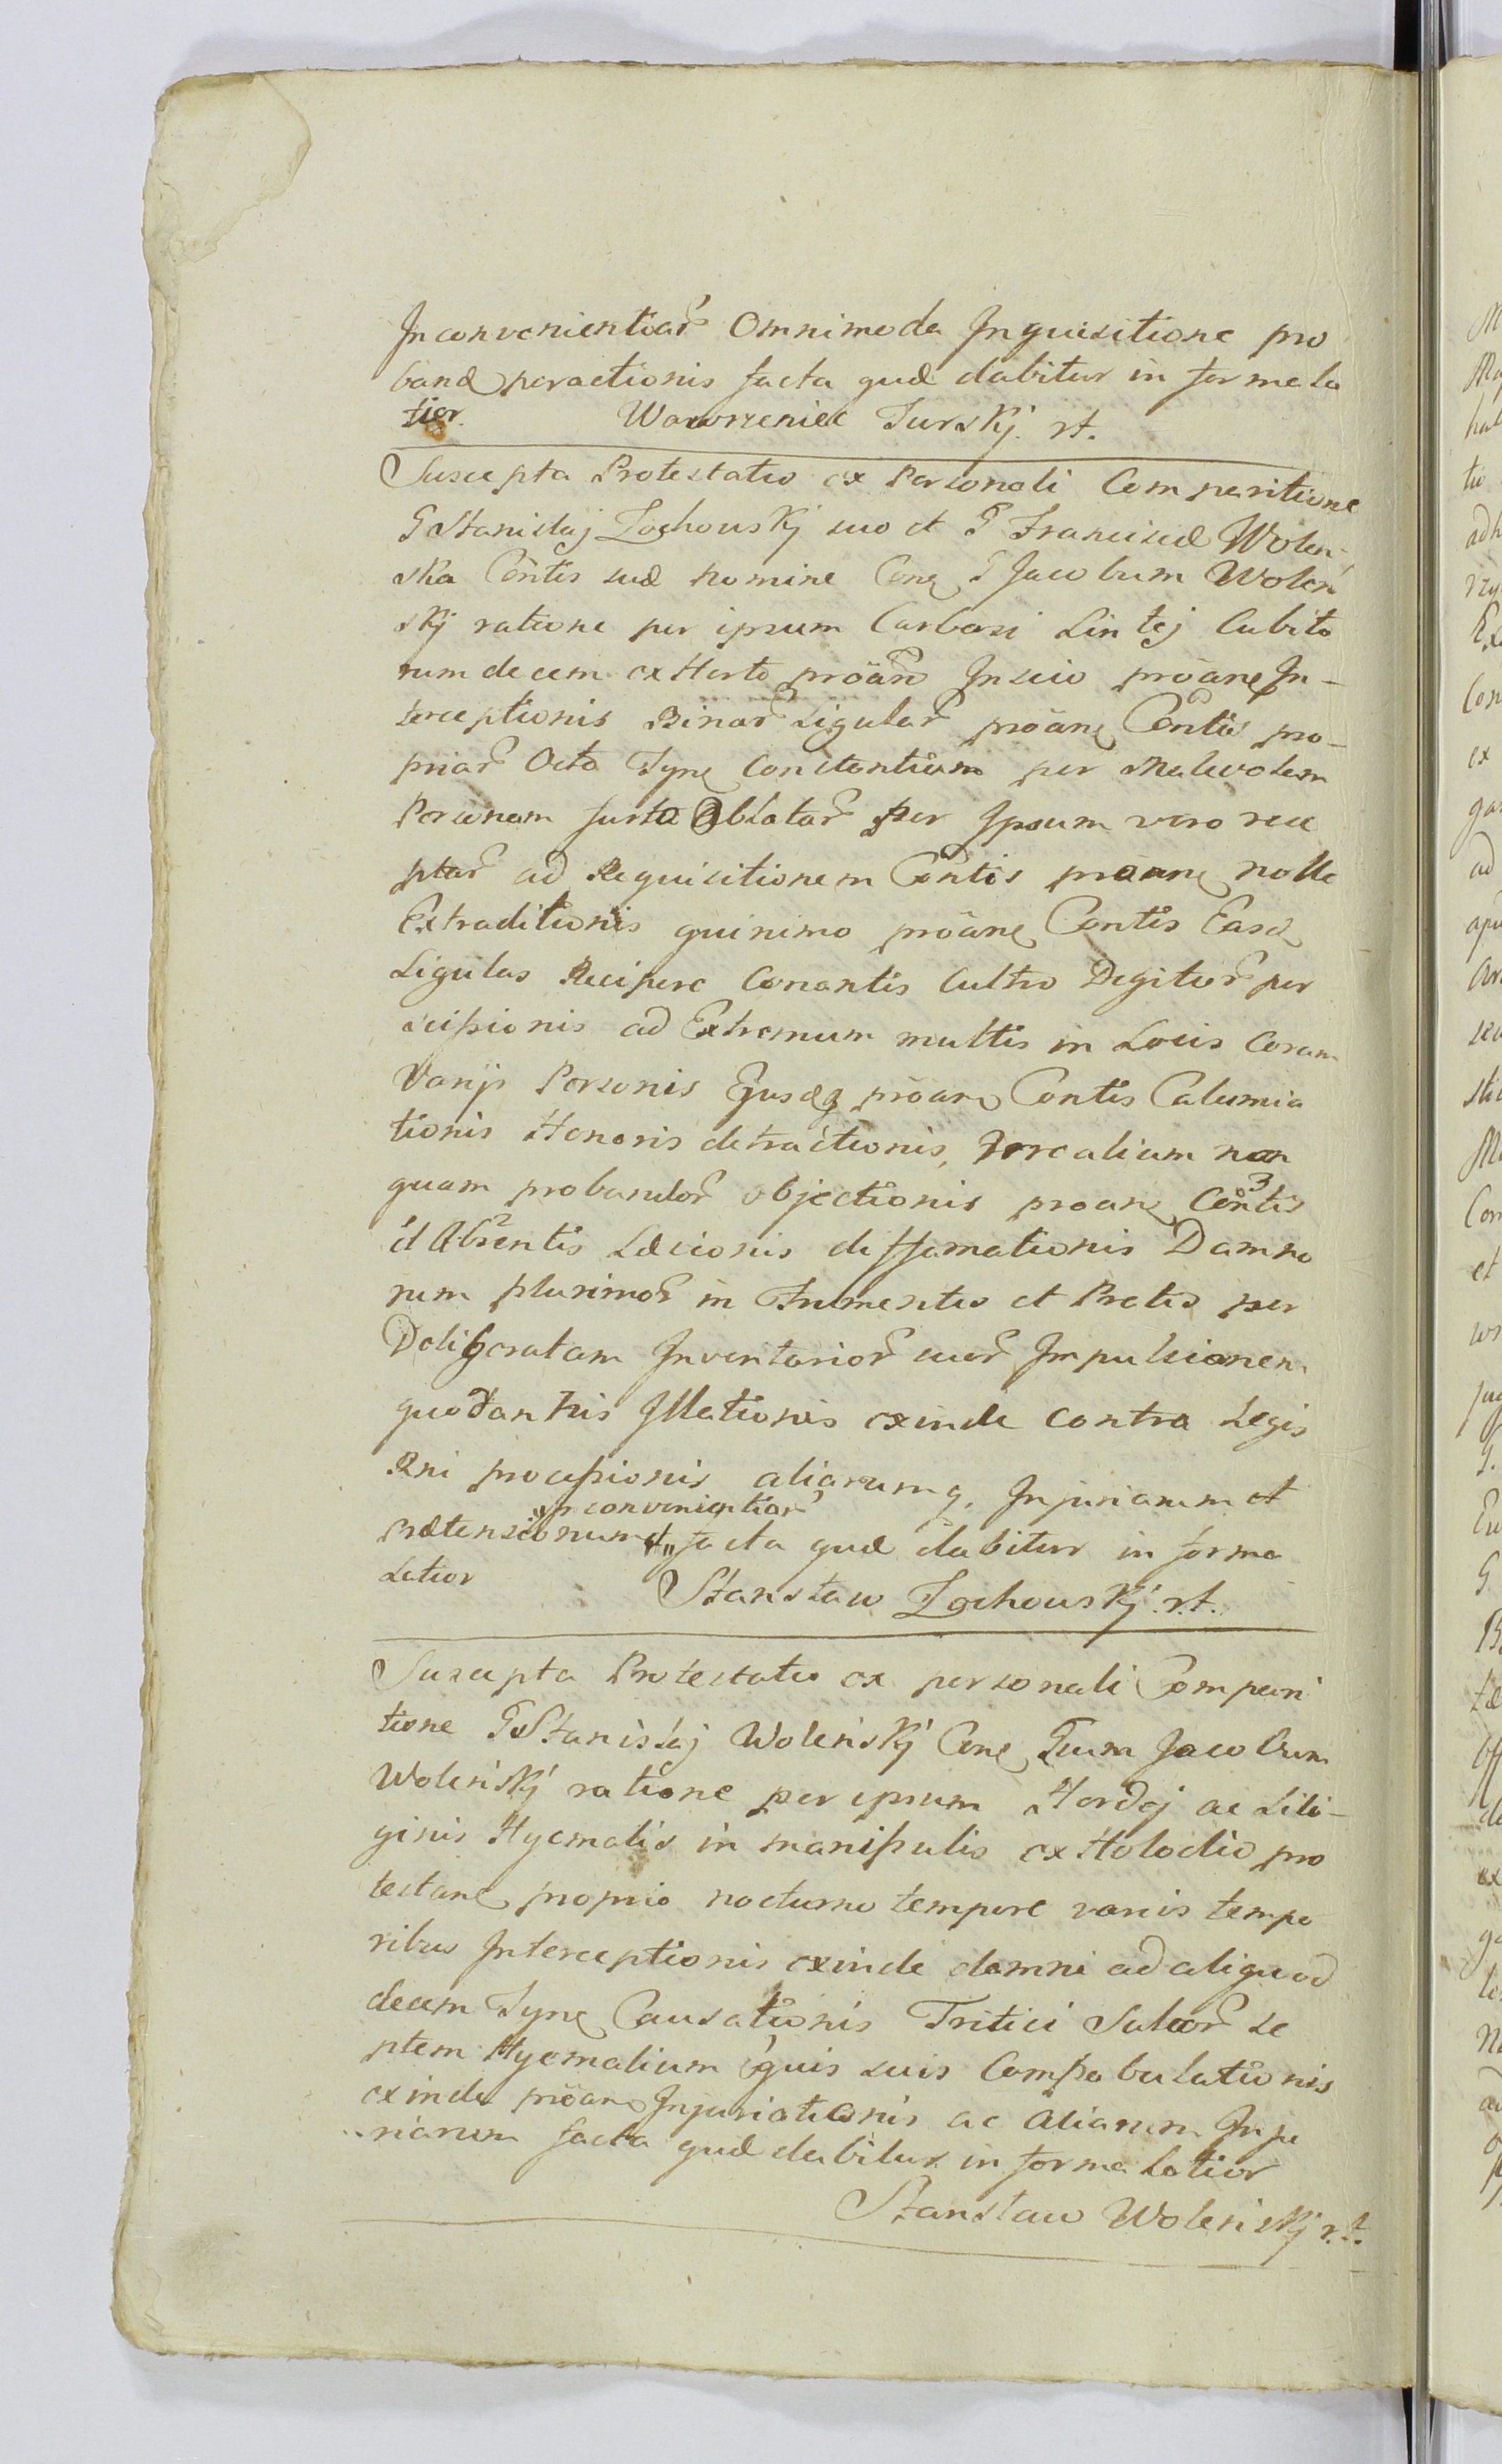 Inconvenientiar Omnimoda Inquisitione pro
banđ peractionis facta quæ dabitur in forma la
tior. Wawrzeniec Turskÿ rt.
Suscepta Protestatio ex Personali Comparitione
G Stanislaj Zochouskÿ suo et G Franciscæ Woleń-
ska Cōntis suæ nomine Cone G Jacobum Woleń
skÿ ratione per ipsum Carbasi Lintej Cubito
rum decem ex Horto prōan Inscio prōane In-
terceptionis Binar Ligular prōane Contis pro-
priar Octo Tyne Constantium per Malevolam
Personam furto Oblatar per Ipsum vero rece
ptar ad Requisitionem Contis prōane nolle
Extraditionis quinimo prōane Contis Easd
Ligulas Recipere Conantis Cultro Degitor per
scissionis ad Extremum multis in Locis Coram
Varijs Personis Ejusdq prōane Contis Calumia
tionis Honoris detractionis, non
quam probandor objectionis proane Contis 3
et 1 Abrentis 2 Læsionis diffamationis Damno
rum plurimor in Frumentis et Pratis per
Deliberatam Inventarior suor Impulsionem
quotannis Illationis exinde contra Legis
Rni processionis aliarumq. Injuriarum et
"Inconvenientiar
prætensionum et" facta quæ dabitur in forma
Latior Stanslaw Zochouskÿ rt.
Suscepta Protestatio ex personali Compari
tione G Stanislaj Woleńskÿ Cone Gum Jacobum
Woleńskÿ ratione per ipsum Hordej ac Sili-
ginis Hyemalis in manipulis ex Holodio pro
testane proprio nocturno tempore varis tempo
ribus Interceptionis exinde damni ad aliquod
decem Tyne Causationis Tritici Sulcor se
ptem Hyemalium equis suis Compabulationis
exinde prōane Injuriationis ac aliarum Inju
riarum facta quæ dabitur in forma Latior
Stanslaw Woleńskÿ rt.